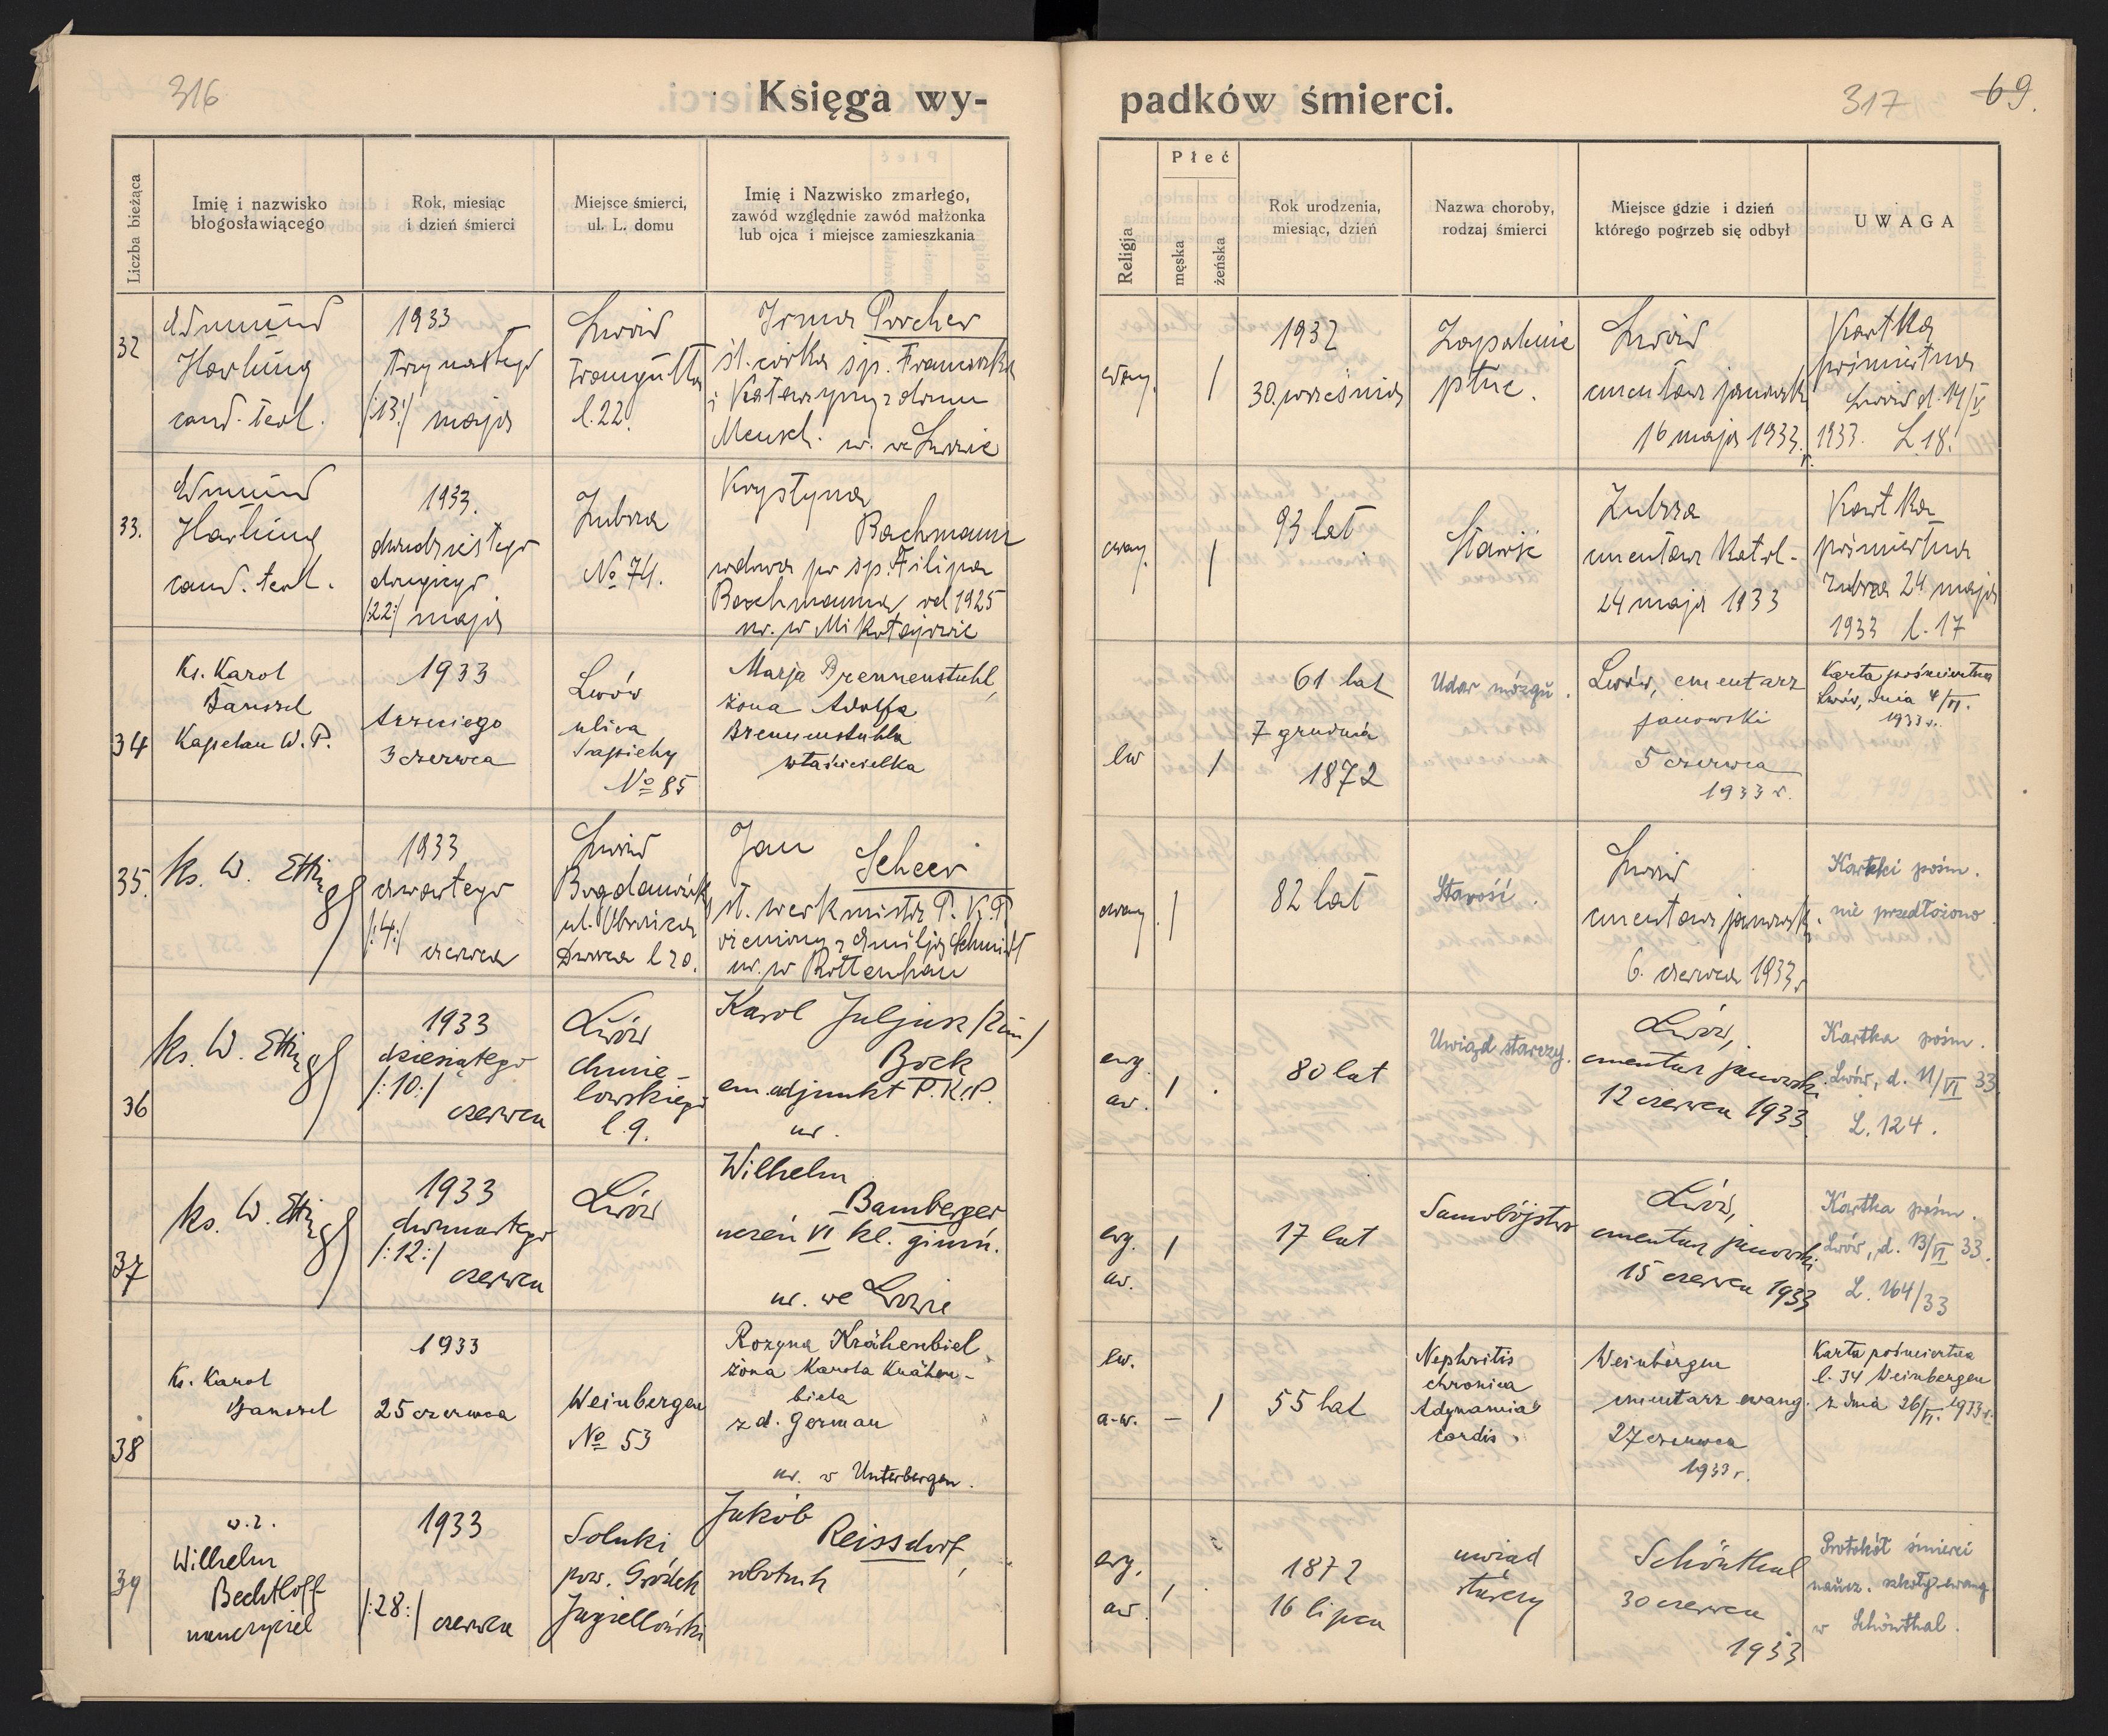 316
Księga wy-
padków śmierci.
317
69.
Liczba bieżąca
Imię i nazwisko
błogosławiącego
Rok, miesiąc
i dzień śmierci
Miejsce śmierci,
ul. L. domu
Imię i Nazwisko zmarłego,
zawód względnie zawód małżonka
lub ojca i miejsce zamieszkania
Religja
Płeć
męska
żeńska
Rok urodzenia,
miesiąc, dzień
Nazwa choroby,
rodzaj śmierci
Miejsce gdzie i dzień
którego pogrzeb się odbył
UWAGA
32
Edmund
Harlung
cand. teol.
1933
trzynastego
/:13:/ maja
Lwów
Traugutta
l. 22.
Irma
śl. córka śp. Franciszka
i Katarzyny z domu
Mensch. ur. we Lwowie
ewg.
/
1932
30 września
Zapalenie
płuc.
Lwów
cmentarz janowski
16 maja 1933 r.
Kartka
pośmiertna
Lwów d. 14/V
1933. L. 18.
33.
Edmund
Harlung
cand. teol.
1933.
dwudziestego
drugiego
/:22:/ maja
Zubrza
No 74.
Krystyna
Bachmann
wdowa po śp. Filipie
Bachmannie, od 1925
ur. w Mikołajowie
ewg.
/
93 lat
Starość
Zubrza
cmentarz katol.
24 maja 1933
Kartka
pośmiertna
Zubrza 24 maja
1933 l. 17
34
Ks. Karol
Banszel
Kapelan W. P.
1933
trzeciego
3 czerwca
Lwów
ulica
Sapiehy
No 85
Marja Brennenstuhl,
żona Adolfa
Brennenstuhla
właścicielka
lw
/
61 lat
7 grudnia
1872
Udar mózgu.
Lwów, cmentarz
janowski
5 czerwca
1933 r.
Karta pośmiertna
Lwów, dnia 4/VI.
1933 r.
35.
ks. W. Ettinger
1933
czwartego
/:4:/
czerwca
Lwów
Bogdanówka
ul.
l 20.
Jan
Scheer
st. werkmistrz P. K. P.
ożeniony z Emilją Schmidt
ur. w Rottenhan
ewg.
/
82 lat
Starość.
Lwów
cmentarz janowski
6. czerwca 1933 r
Kartki pośm.
nie przedłożono.
36
ks. W. Ettinger
1933
dziesiątego
/:10:/
czerwca
Lwów
Chmie-
lowskiego
l. 9.
Karol Juljusz
Bock
em. adjunkt P.K.P.
ur.
ewg.
aw.
/
80 lat
Uwiąd starczy.
Lwów,
cmentarz janowski
12 czerwca 1933.
Kartka pośm.
Lwów, d. 11/VI 33.
L. 124.
37
ks. W. Ettinger
1933
dwunastego
/:12:/
czerwca
Lwów
Wilhelm
Bamberger
uczeń VI kl. gimn.
ur. we Lwowie
ewg.
aw.
/
17 lat
Samobójstwo
Lwów,
cmentarz janowski
15 czerwca 1933
Kartka pośm.
Lwów, d. 13/VI 33.
L. 164/33
38
Ks. Karol
Banszel
1933
25 czerwca
Weinbergen
No 53
Rozyna Krähenbiel,
żona Karola Krähen-
biela
z d. German
ur. w Unterbergen.
lw.
a-w.
– /
55 lat
Nephritis
chronica
Adynamia
cordis.
Weinbergen
cmentarz ewang.
27 czerwca
1933 r.
Karta pośmiertna
l. 34 Weinbergen
z dnia 26/VI. 1933 r.
39
w. z.
Wilhelm
Bechtloff
nauczyciel
1933
/:28:/ czerwca
Soluki
pow. Gródek
Jagielloński
Jakób
Reissdorf,
robotnik
ewg.
aw.
/
1872
16 lipca
uwiąd
starczy
Schönthal
30 czerwca
1933
Protokół śmierci
naucz. szkoły ewang.
w Schönthal.